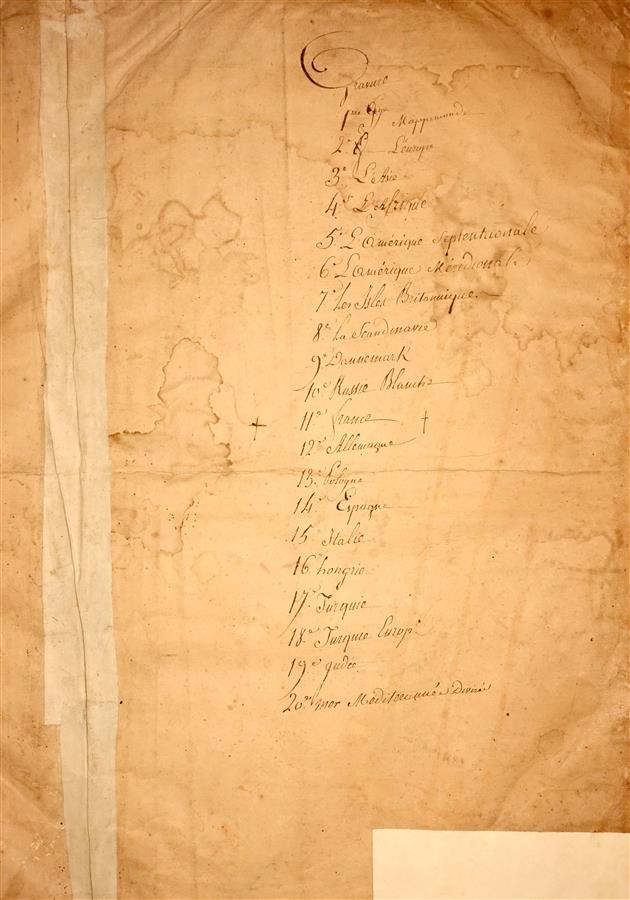 Gravure
1re Mappemonde
2e L'europe
3e L'Asie
4e L'Afrique
5e L'Amérique Septentrionale
6e L'Amérique Méridionale
7e Les Isles Britannique
8e la Scandinavie
9e Dannemark
10e Russie Blanche
11e france
12e Allemagne
13e Pologne
14e Espagne
15 Italie
16e hongrie
17e Turquie
18e Turquie Europe
19e judée
20e mer Mediteranné Divisée